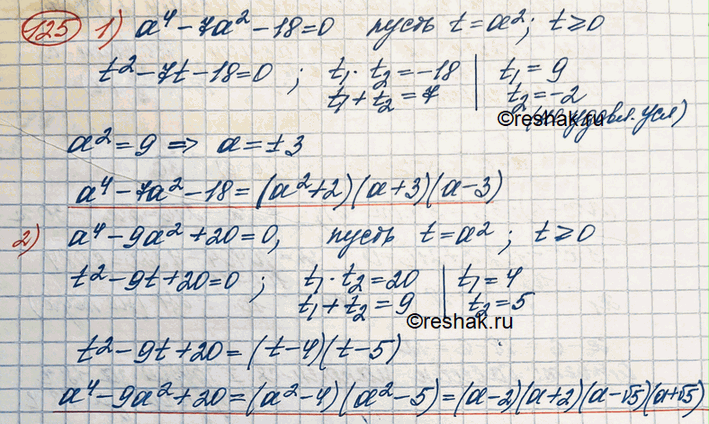 125 1) a⁴ - 7a² - 18 = 0 пусть t = a²; t ≥ 0
t² - 7t - 18 = 0 ; t₁ · t₂ = -18 | t₁ = 9
t₁ + t₂ = 7 | t₂ = -2
(не удовл. усл)
©reshak.ru
a² = 9 => a = ±3
a⁴ - 7a² - 18 = (a² + 2)(a + 3)(a - 3)
2) a⁴ - 9a² + 20 = 0, пусть t = a² ; t ≥ 0
t² - 9t + 20 = 0 ; t₁ · t₂ = 20 | t₁ = 4
t₁ + t₂ = 9 | t₂ = 5
©reshak.ru
t² - 9t + 20 = (t - 4)(t - 5)
a⁴ - 9a² + 20 = (a² - 4)(a² - 5) = (a - 2)(a + 2)(a - √5)(a + √5)